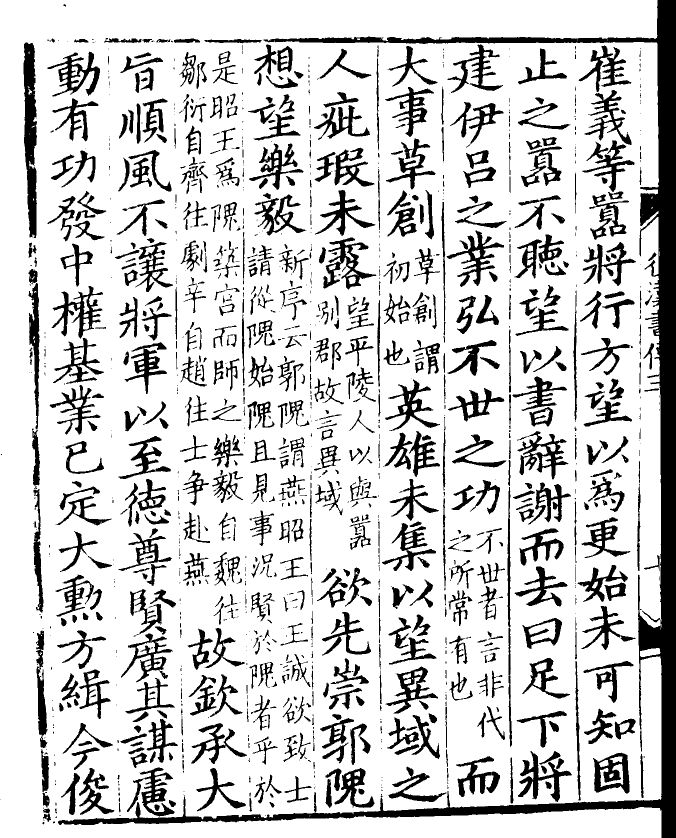 崔義等囂將行方望以為更始未可知固
止之囂不聽望以書辭謝而去曰足下將
建伊吕之業弘不世之功不世者言非代之所常有也而
大事草創草創謂初始也英雄未集以望異域之
人疵瑕未露望平陵人以與囂別郡故言異域欲先崇郭隗
想望樂毅新序云郭隗謂燕昭王曰王誠欲致士請從隗始隗且見事況賢於隗者乎於
是昭王爲隗築宫而師之樂毅自魏往鄒衍自齊往劇辛自趙往士争赴燕故欽承大
旨順風不讓將軍以至徳尊賢廣其謀慮
動有功發中權基業已定大勲方緝今俊
後漢書傳三